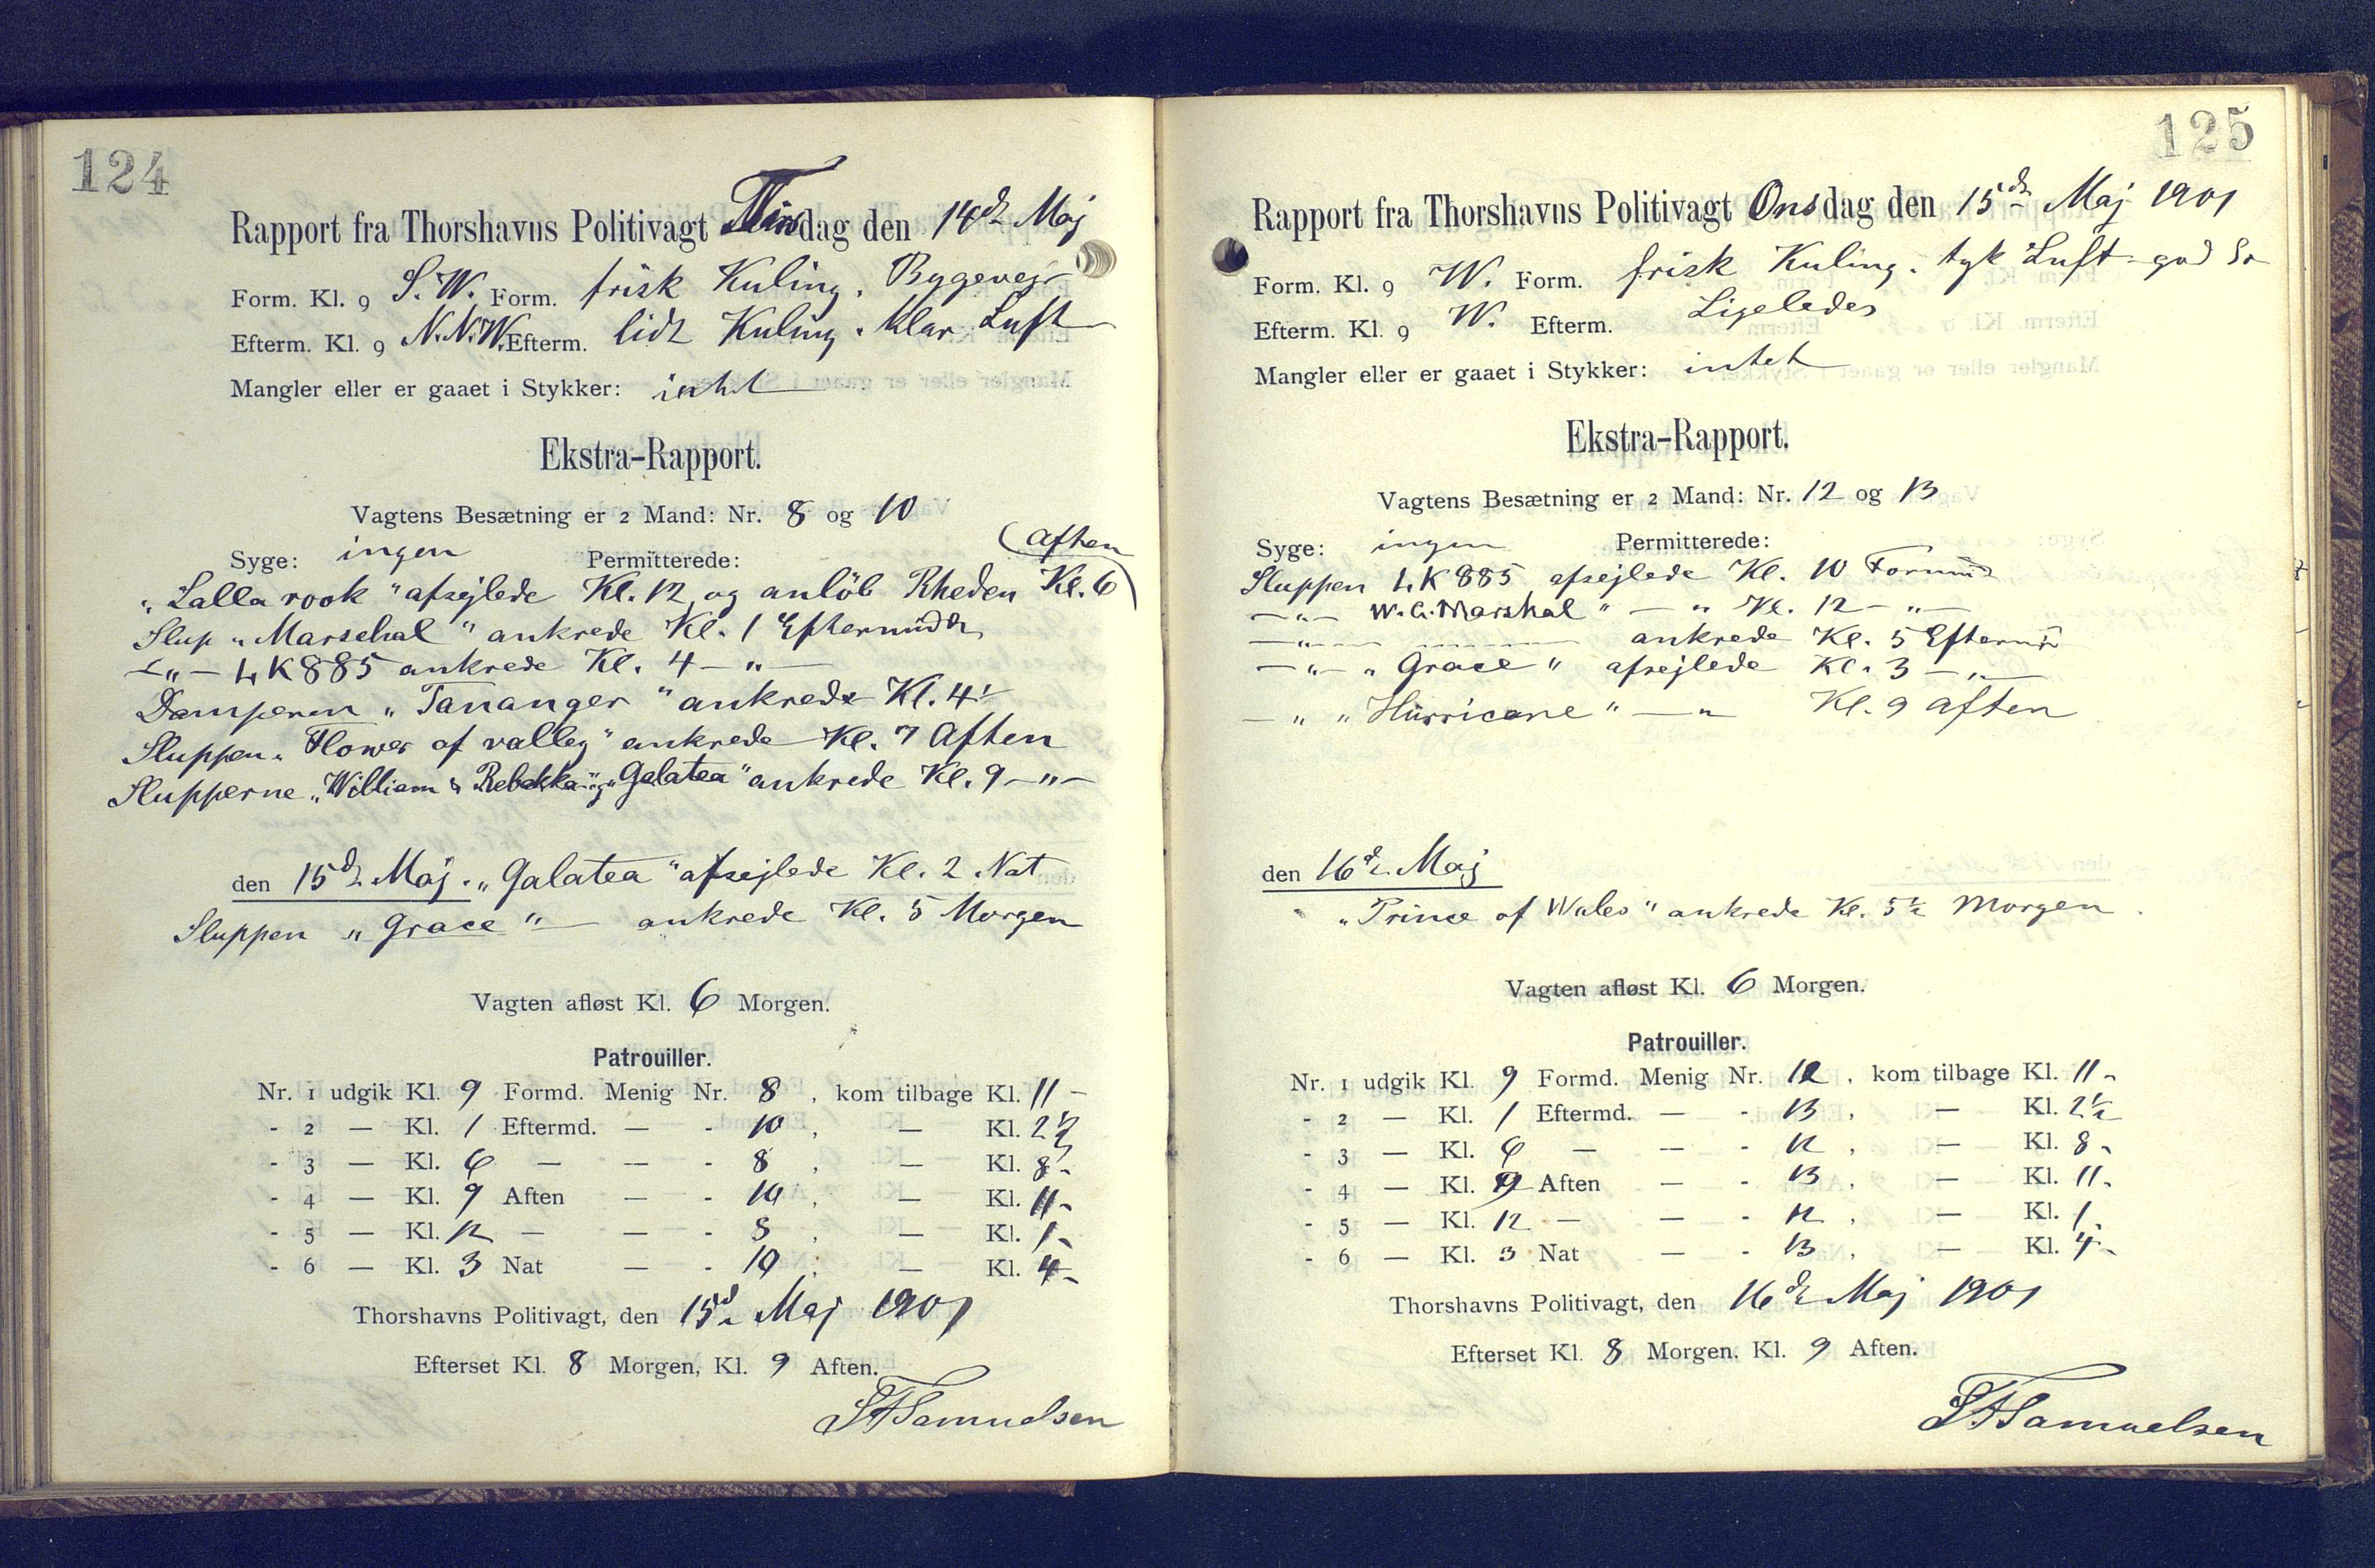 124
Rapport fra Thorshavns Politivagt Tirsdag den 14de Maj
Form. Kl. 9 S. W. Form. frisk Kuling. Bygevejr
Efterm. Kl. 9 N. N. W. Efterm. lidt Kuling. klar Luft
Mangler eller er gaaet i Stykker: intet
Ekstra-Rapport.
Vagtens Besætning er 2 Mand: Nr. 8 og 10
Syge: ingen Permitterede: (Aften
"Lalla rook" afsejlede Kl. 12 og anløb Rheden Kl. 6)
Slup "Marschal" ankrede Kl. 1 Eftermidd
-"- LK 885 ankrede Kl. 4 -"-
Damperen "Tananger" ankrede Kl. 4½
Sluppen "Flower of valley" ankrede Kl. 7 Aften
Slupperne "William & Rebekka" og "Galatea" ankrede Kl. 9 -"-
den 15de Maj. "Galatea" afsejlede Kl. 2 Nat
Sluppen "Grace" - ankrede Kl. 5 Morgen
Vagten afløst Kl. 6 Morgen.
Patrouiller.
Nr. 1 udgik Kl. 9 Formd. Menig Nr. 8, kom tilbage Kl. 11 -
- 2 — Kl. 1 Eftermd. — - 10, — Kl. 2½
- 3 — Kl. 6 — — - 8, — Kl. 8 -
- 4 — Kl. 9 Aften — - 10, — Kl. 11 -
- 5 — Kl. 12 — — - 8, — Kl. 1 -
- 6 — Kl. 3 Nat — - 10, — Kl. 4 -
Thorshavns Politivagt, den 15de Maj 1901
Efterset Kl. 8 Morgen, Kl. 9 Aften.
Samuelsen
125
Rapport fra Thorshavns Politivagt Onsdag den 15de Maj 1901
Form. Kl. 9 W. Form. frisk Kuling. tyk Luft god So
Efterm. Kl. 9 W. Efterm. Ligeledes
Mangler eller er gaaet i Stykker: intet
Ekstra-Rapport.
Vagtens Besætning er 2 Mand: Nr. 12 og 13
Syge: ingen Permitterede:
Sluppen LK 885 afsejlede Kl. 10 Formd
-"- W. G. Marshal" -"- Kl. 12 -"-
-"- — — ankrede Kl. 5 Eftermd
-"- "Grace" afsejlede Kl. 3 -"-
-"- "Hurricane" -"- Kl. 9 Aften
den 16de Maj
"Prince of Wales" ankrede Kl. 5½ Morgen
Vagten afløst Kl. 6 Morgen.
Patrouiller.
Nr. 1 udgik Kl. 9 Formd. Menig Nr. 12, kom tilbage Kl. 11 -
- 2 — Kl. 1 Eftermd. — - 13, — Kl. 2½
- 3 — Kl. 6 — — - 12, — Kl. 8 -
- 4 — Kl. 9 Aften — - 13, — Kl. 11 -
- 5 — Kl. 12 — — - 12, — Kl. 1 -
- 6 — Kl. 3 Nat — - 13, — Kl. 4 -
Thorshavns Politivagt, den 16de Maj 1901
Efterset Kl. 8 Morgen, Kl. 9 Aften.
Samuelsen